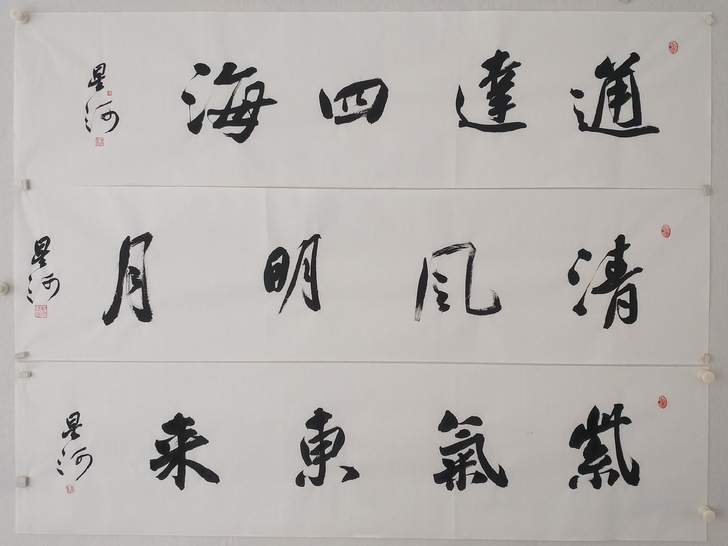 通達四海
星河
清风明月
星河
紫氣東来
星河